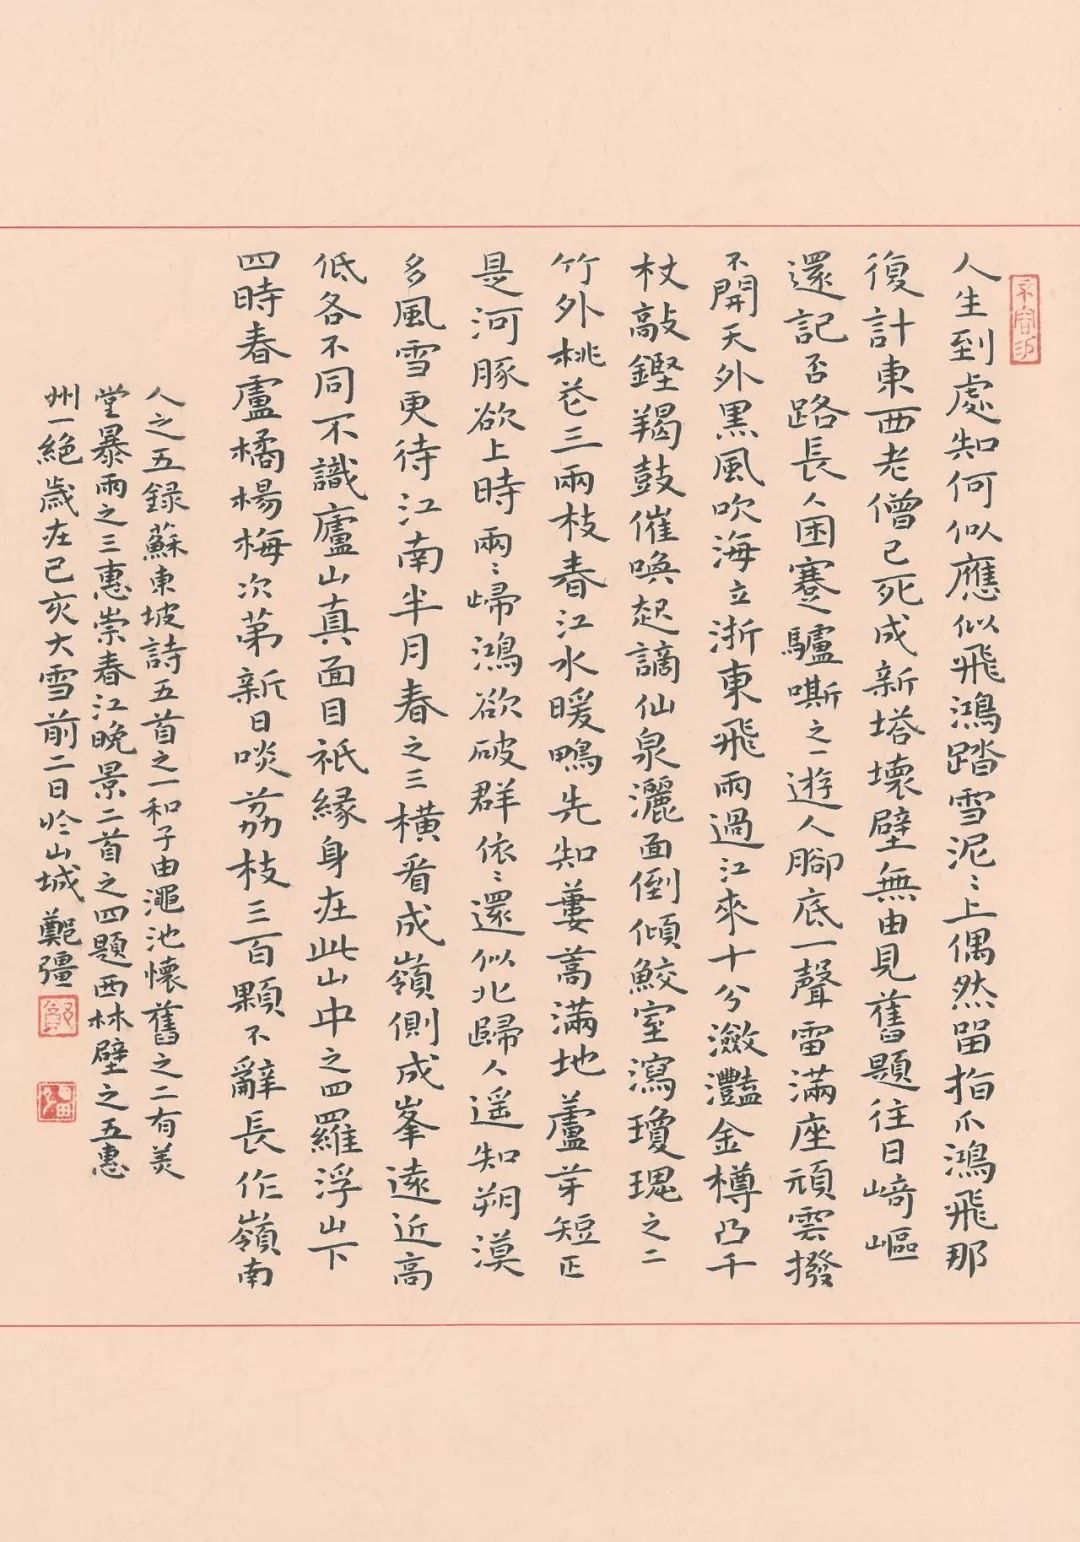 人生到處知何似應似飛鴻踏雪泥〻上偶然留指爪鴻飛那
復計東西老僧已死成新塔壞壁無由見舊題往日崎嶇
還記否路長人困蹇驢嘶之一遊人腳底一聲雷滿座頑雲撥
不開天外黑風吹海立浙東飛雨過江來十分瀲灩金樽凸千
杖敲鏗羯鼓催喚起謫仙泉灑面倒傾鮫室瀉瓊瑰之二
竹外桃花三兩枝春江水暖鴨先知蔞蒿滿地蘆芽短正
是河豚欲上時兩〻歸鴻欲破群依〻還似北歸人遥知朔漠
多風雪更待江南半月春之三橫看成嶺側成峯遠近高
低各不同不識廬山真面目祇緣身在此山中之四羅浮山下
四時春盧橘楊梅次第新日啖荔枝三百顆不辭長作嶺南
人之五録蘇東坡詩五首之一和子由澠池懷舊之二有美
堂暴雨之三惠崇春江晚景二首之四題西林壁之五惠
州一絕歲在己亥大雪前二日於山城鄭彊